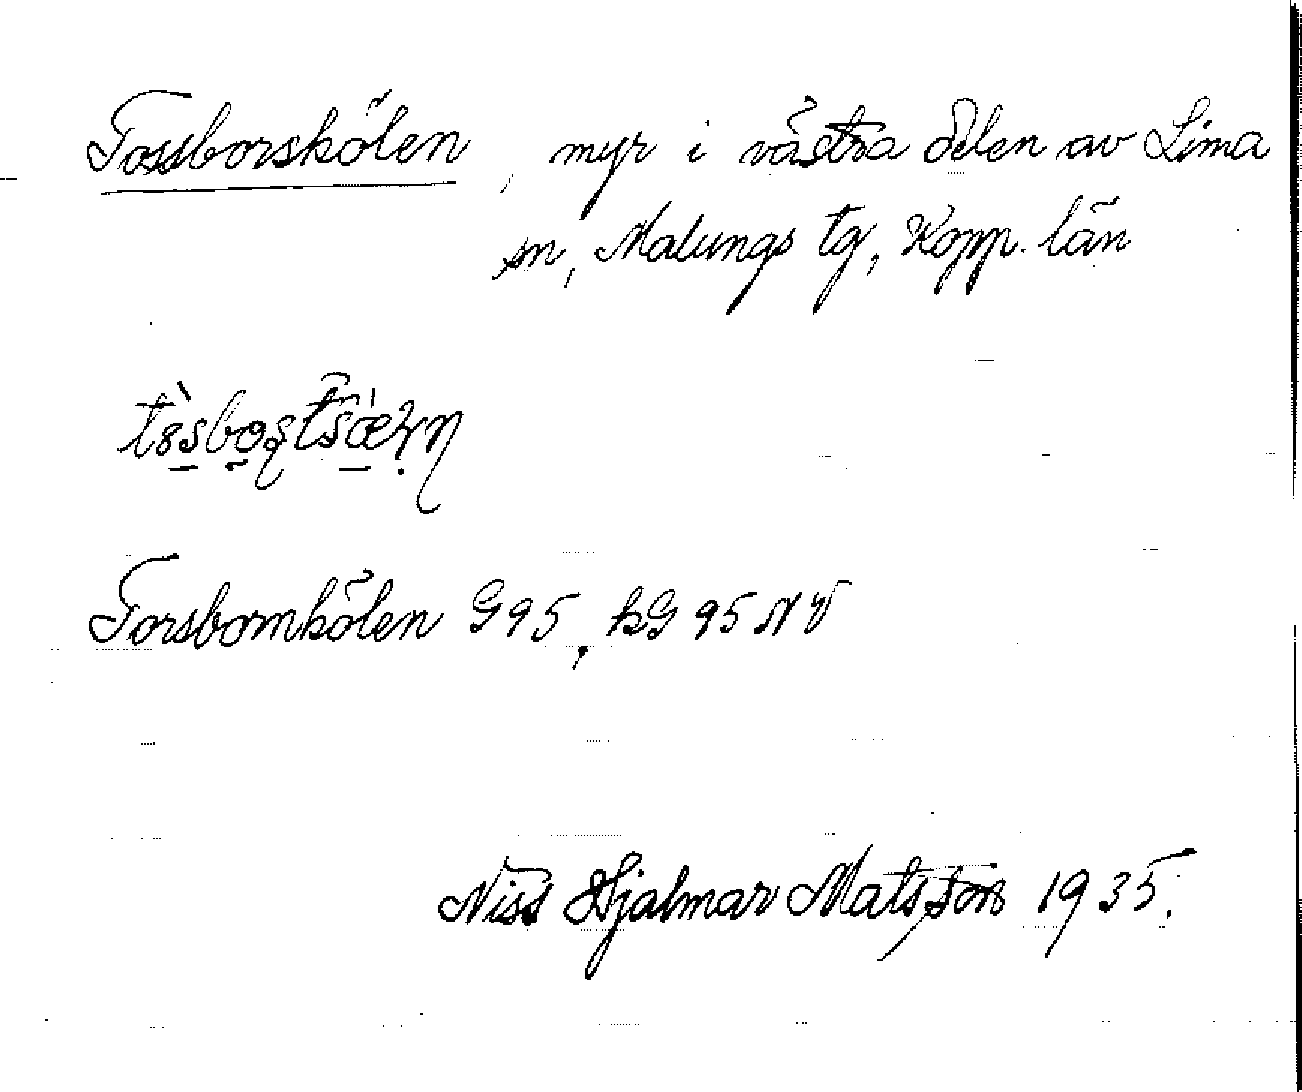 Tossborskölen, myr i västra delen av Lima
sn, Malungs tg, Kopp. län
Forsbomkölen G95, kG 95 NV
Niss Hjalmar Matsson 1935.